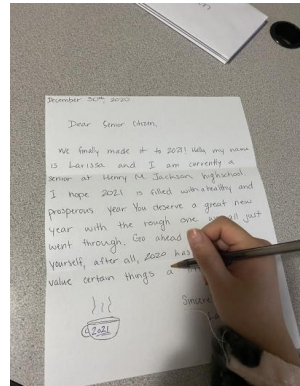 December 30th, 2020
Dear Senior Citizen,
We finally made it to 2021! Hello, my name
is Larissa and I am currently a
senior at Henry M. Jackson highschool.
I hope 2021 is filled with a healthy and
prosperous year You deserve a great new
year with the rough one we all just
went through. Go ahead
yourself, after all, 2020 has
value certain things a
Sincere
La
2021